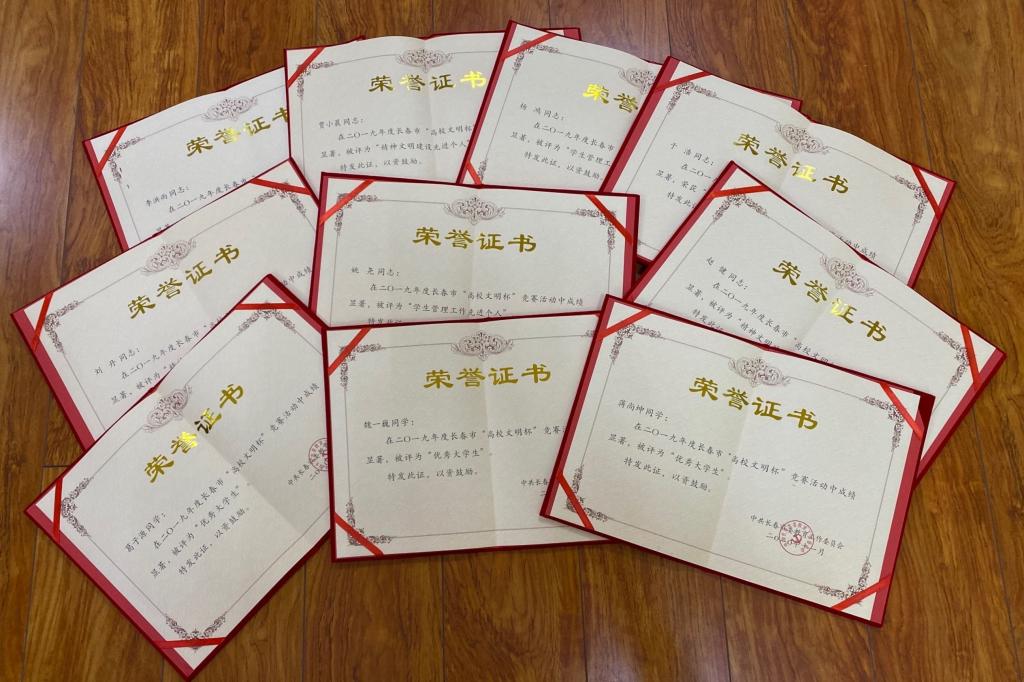 荣誉证书
李洪雨同志：
在二〇一九年度长春市
荣誉证书
贾小晨同志：
在二〇一九年度长春市“高校文明杯
显著，被评为“精神文明建设先进个人”
特发此证，以资鼓励。
荣誉证
杨 鸿同志：
在二〇一九年度长春市
显著，被评为“学生管理工
特发此证，以资鼓励。
荣誉证书
于 浩同志：
在二〇
显著，荣获“
特发此
活动中成绩
荣誉证书
刘 丹同志：
在二〇一九年度长春市
显著，被评为
特发此证，以
中成绩
荣誉证书
姚 尧同志：
在二〇一九年度长春市“高校文明杯”竞赛活动中成绩
显著，被评为“学生管理工作先进个人”
特发此证
荣誉证书
赵 健同志：
在二〇一九年度长春市
显著，被评为“精神文
特发此
荣誉证书
葛子源同学：
在二〇一九年度长春市“高校文明杯”竞赛活动中成绩
显著，被评为“优秀大学生”
特发此证，以资鼓励。
中共长春
荣誉证书
魏一巍同学：
在二〇一九年度长春市“高校文明杯”竞赛
显著，被评为“优秀大学生”
特发此证，以资鼓励。
中共长春
荣誉证书
蒋尚坤同学：
在二〇一九年度长春市“高校文明杯”竞赛活动中成绩
显著，被评为“优秀大学生”
特发此证，以资鼓励。
中共长春
作委员会
二〇
月